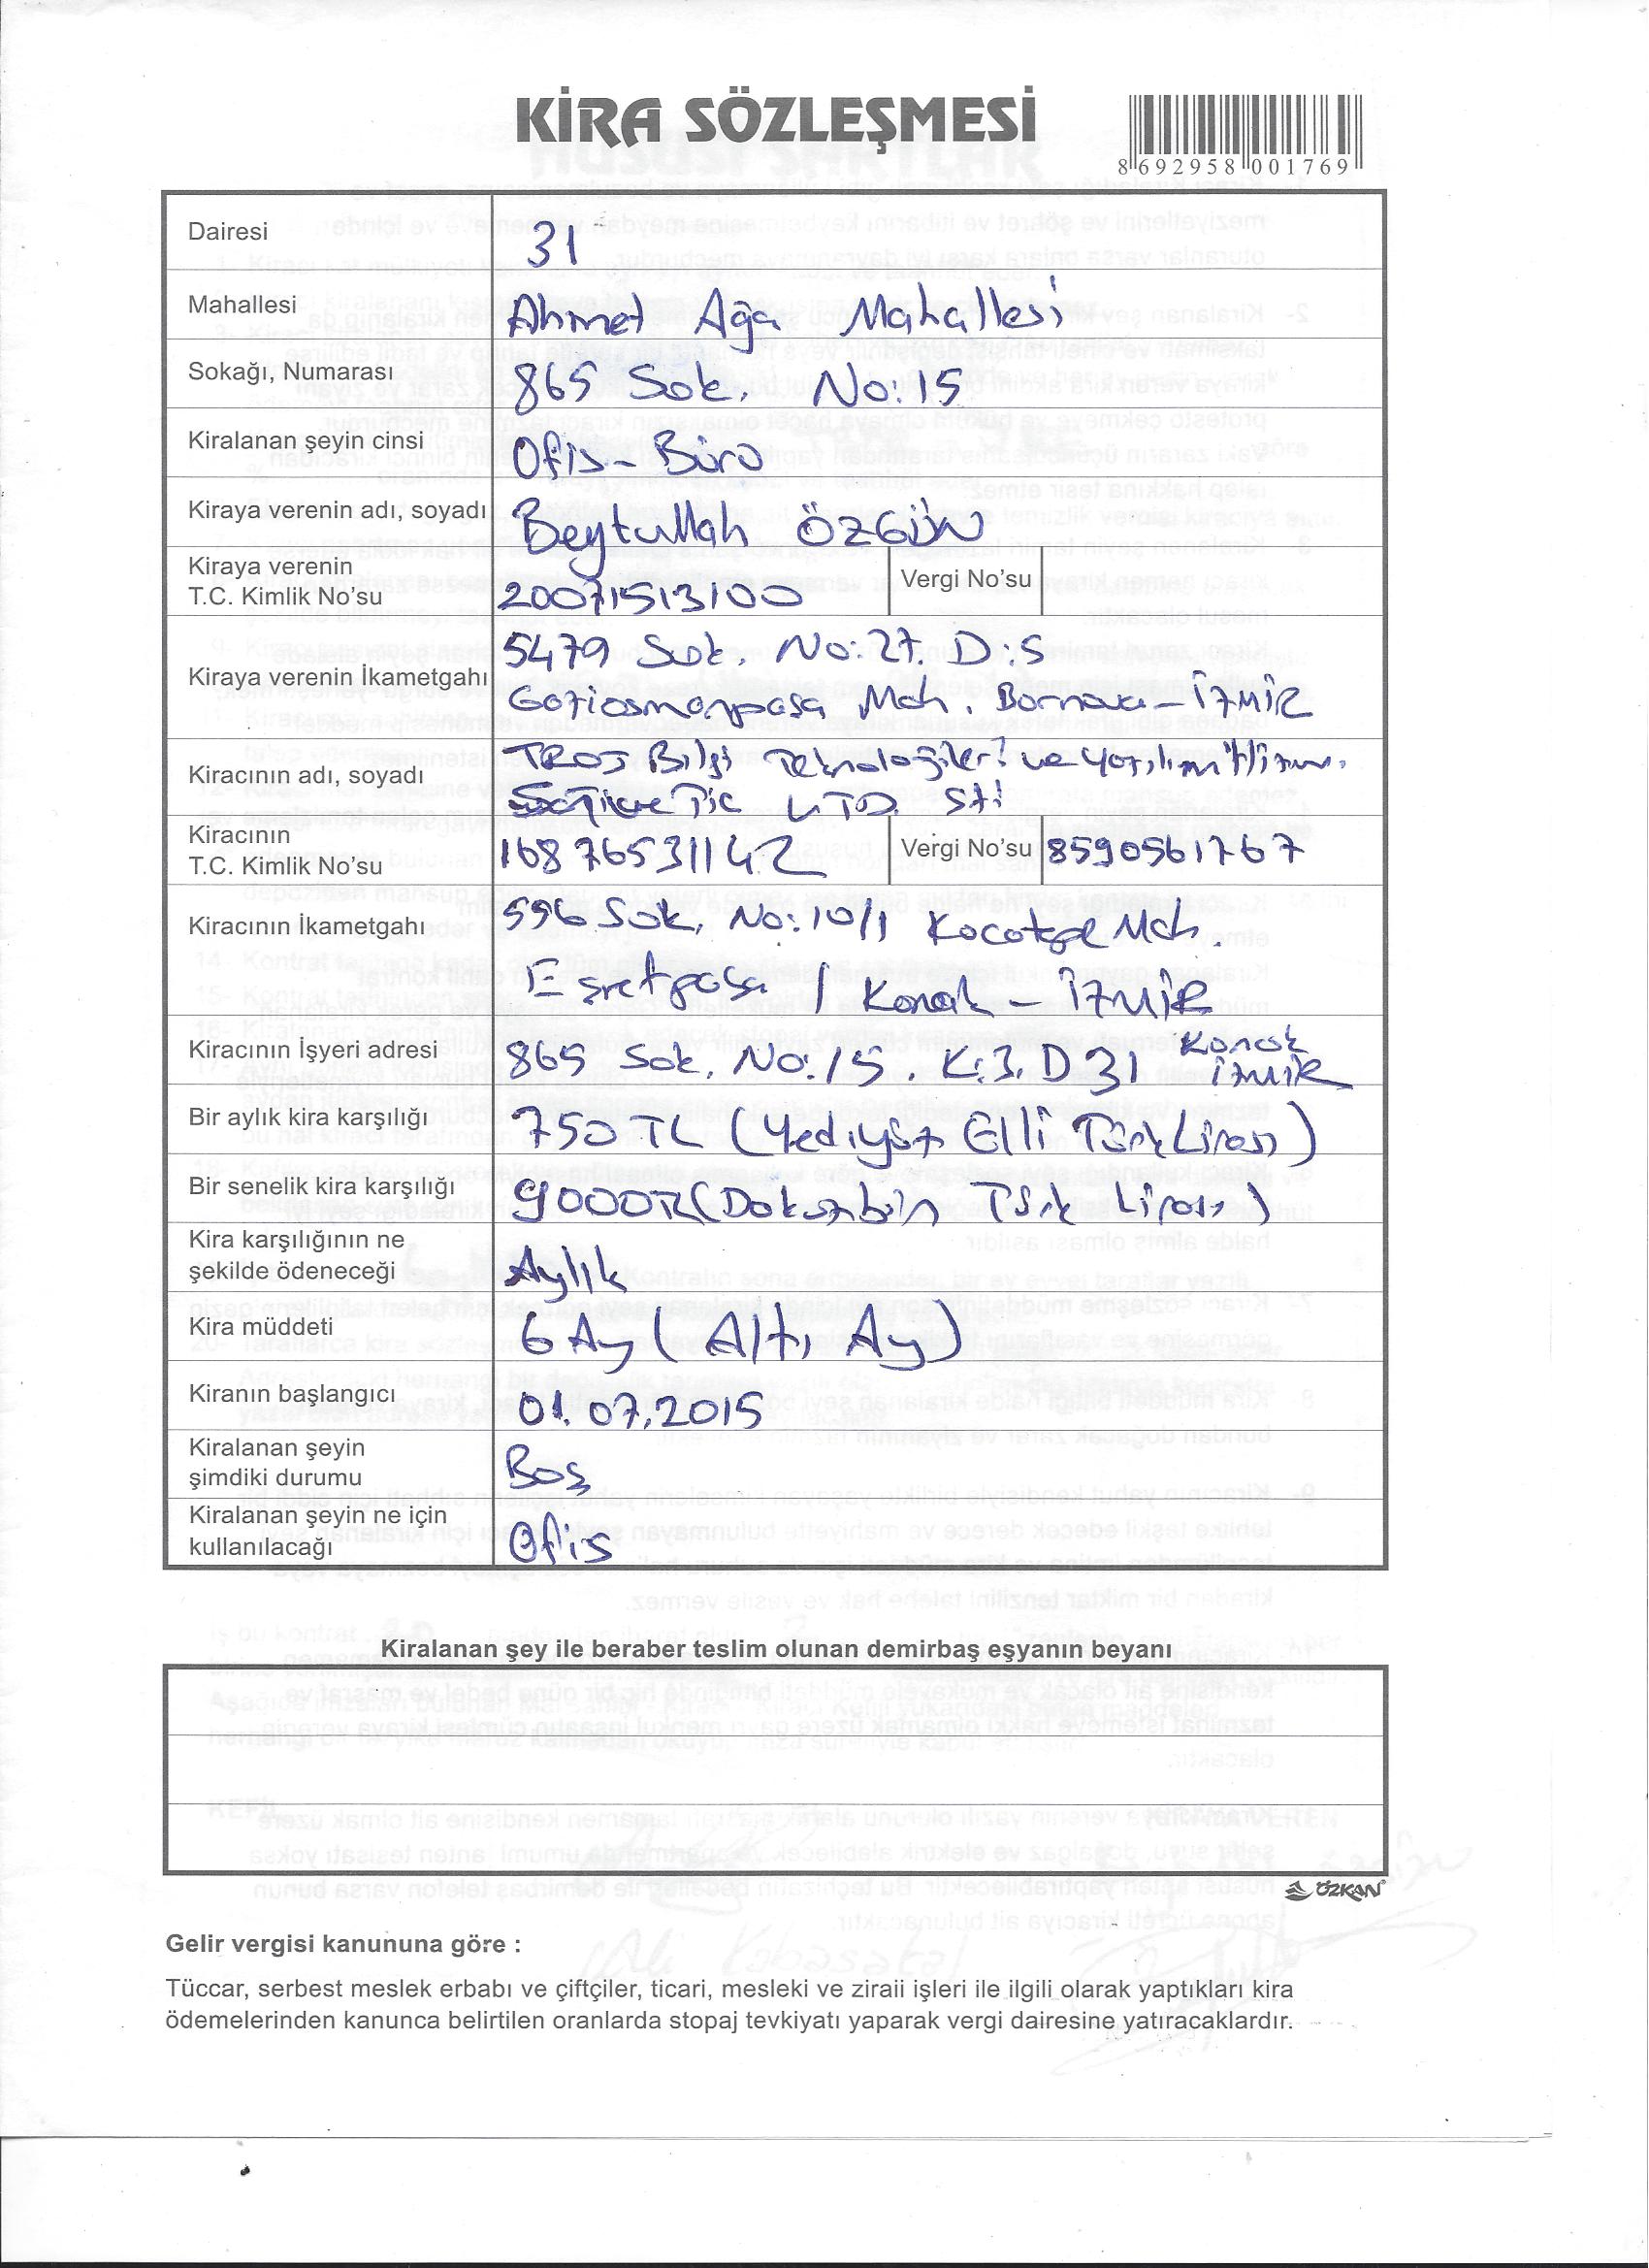 KİRA SÖZLEŞMESİ
8 692958 001769
Dairesi 31
Mahallesi Ahmet Ağa Mahallesi
Sokağı, Numarası 865 Sok. No: 15
Kiralanan şeyin cinsi Ofis - Büro
Kiraya verenin adı, soyadı Beytullah ÖZGÜN
Kiraya verenin
T.C. Kimlik No'su 20071513100 Vergi No'su
Kiraya verenin İkametgahı 5479 Sok. No: 27. D:5
Gaziosmanpaşa Mah. Bornova - İZMİR
Kiracının adı, soyadı TROJ Bilgi Teknolojileri ve Yazılım Hizm.
Tic LTD. Sti
Kiracının
T.C. Kimlik No'su 16876531142 Vergi No'su 8590561767
Kiracının İkametgahı 596 Sok. No: 10/1 Kocatepe Mah.
Eşrefpaşa / Konak - İZMİR
Kiracının İşyeri adresi 865 Sok. No: 15. K:3. D 31 Konak
İZMİR
Bir aylık kira karşılığı 750 TL (Yediyüz Elli Türk Lirası)
Bir senelik kira karşılığı 9000TL (Dokuzbin Türk Lirası)
Kira karşılığının ne
şekilde ödeneceği Aylık
Kira müddeti 6 Ay (Altı Ay)
Kiranın başlangıcı 01.07.2015
Kiralanan şeyin
şimdiki durumu Boş
Kiralanan şeyin ne için
kullanılacağı Ofis
Kiralanan şey ile beraber teslim olunan demirbaş eşyanın beyanı
ÖZKAN
Gelir vergisi kanununa göre :
Tüccar, serbest meslek erbabı ve çiftçiler, ticari, mesleki ve ziraii işleri ile ilgili olarak yaptıkları kira
ödemelerinden kanunca belirtilen oranlarda stopaj tevkiyatı yaparak vergi dairesine yatıracaklardır.